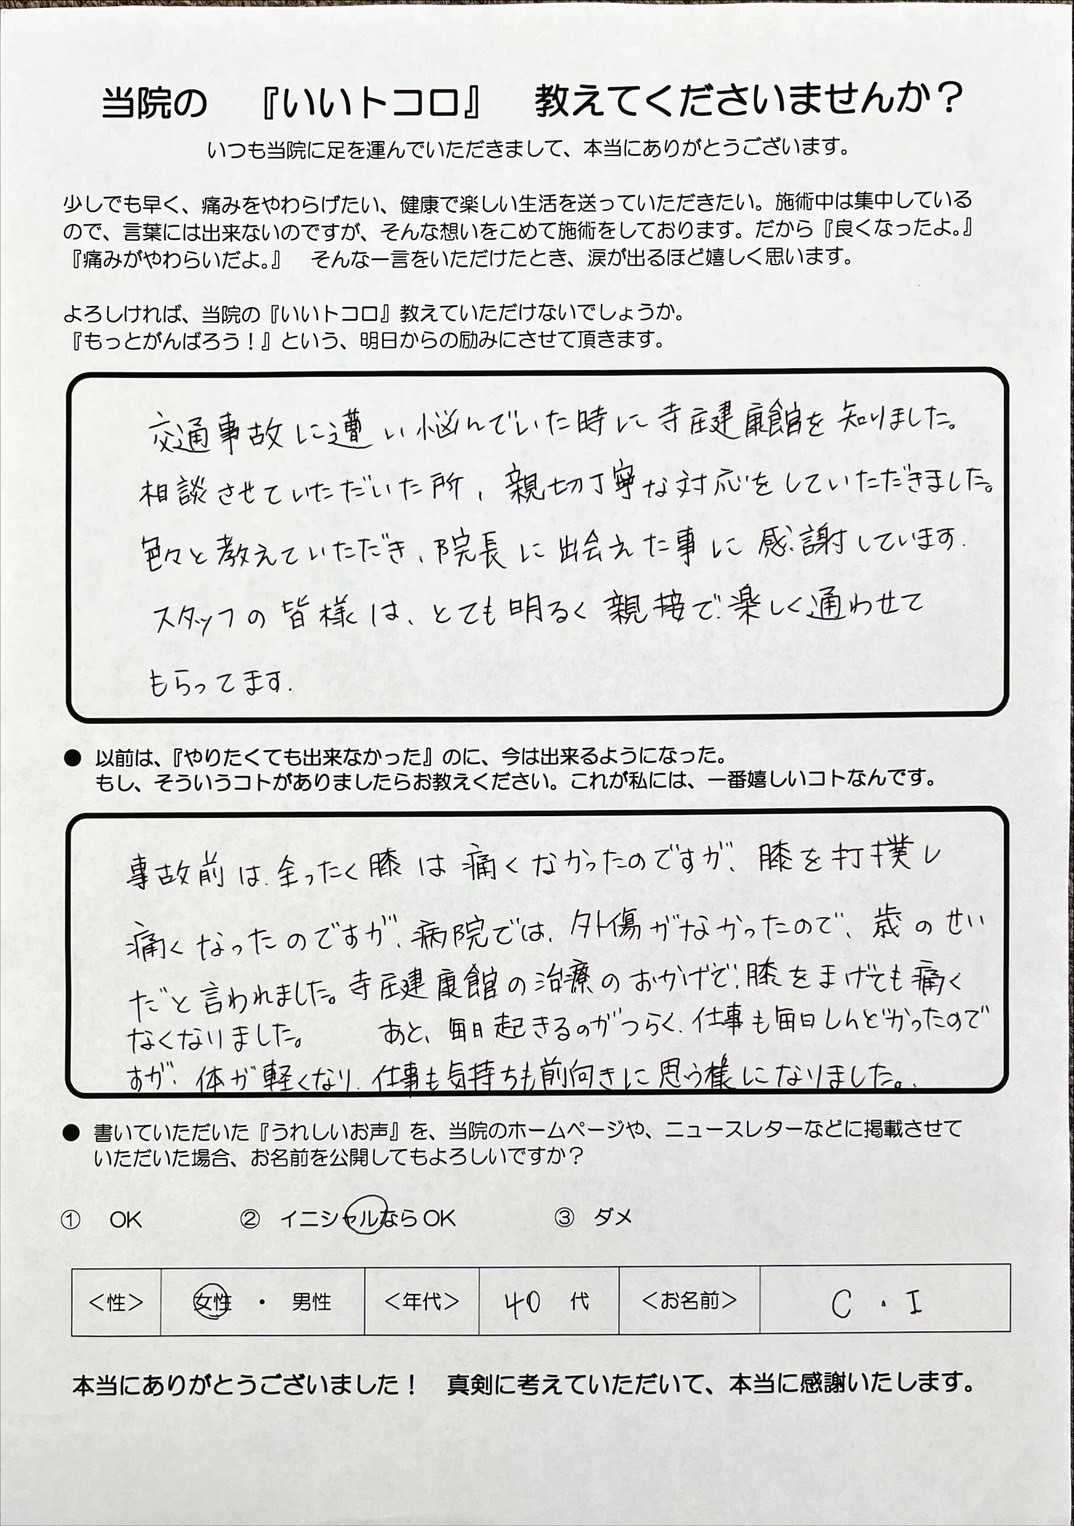 当院の 『いいトコロ』 教えてくださいませんか？
いつも当院に足を運んでいただきまして、本当にありがとうございます。
少しでも早く、痛みをやわらげたい、健康で楽しい生活を送っていただきたい。施術中は集中している
ので、言葉には出来ないのですが、そんな想いをこめて施術をしております。だから『良くなったよ。』
『痛みがやわらいだよ。』 そんな一言をいただけたとき、涙が出るほど嬉しく思います。
よろしければ、当院の『いいトコロ』教えていただけないでしょうか。
『もっとがんばろう！』という、明日からの励みにさせて頂きます。
交通事故に遭い悩んでいた時に寺庄建康館を知りました。
相談させていただいた所、親切丁寧な対応をしていただきました。
色々と教えていただき、院長に出会えた事に感謝しています.
スタッフの皆様は、とても明るく親接で楽しく通わせて
もらってます.
● 以前は、『やりたくても出来なかった』のに、今は出来るようになった。
もし、そういうコトがありましたらお教えください。これが私には、一番嬉しいコトなんです。
事故前は.全ったく膝は痛くなかったのですが、膝を打撲し
痛くなったのですが、病院では、外傷がなかったので、歳のせい
だと言われました。寺庄建康館の治療のおかげで、膝をまげても痛く
なくなりました。 あと、毎日起きるのがつらく、仕事も毎日しんどかったので
すが、体が軽くなり、仕事も気持ちも前向きに思う様になりました。
● 書いていただいた『うれしいお声』を、当院のホームページや、ニュースレターなどに掲載させて
いただいた場合、お名前を公開してもよろしいですか？
① OK ② イニシャルならOK ③ ダメ
＜性＞ 女性 ・ 男性 ＜年代＞ 40 代 ＜お名前＞ C・I
本当にありがとうございました！ 真剣に考えていただいて、本当に感謝いたします。